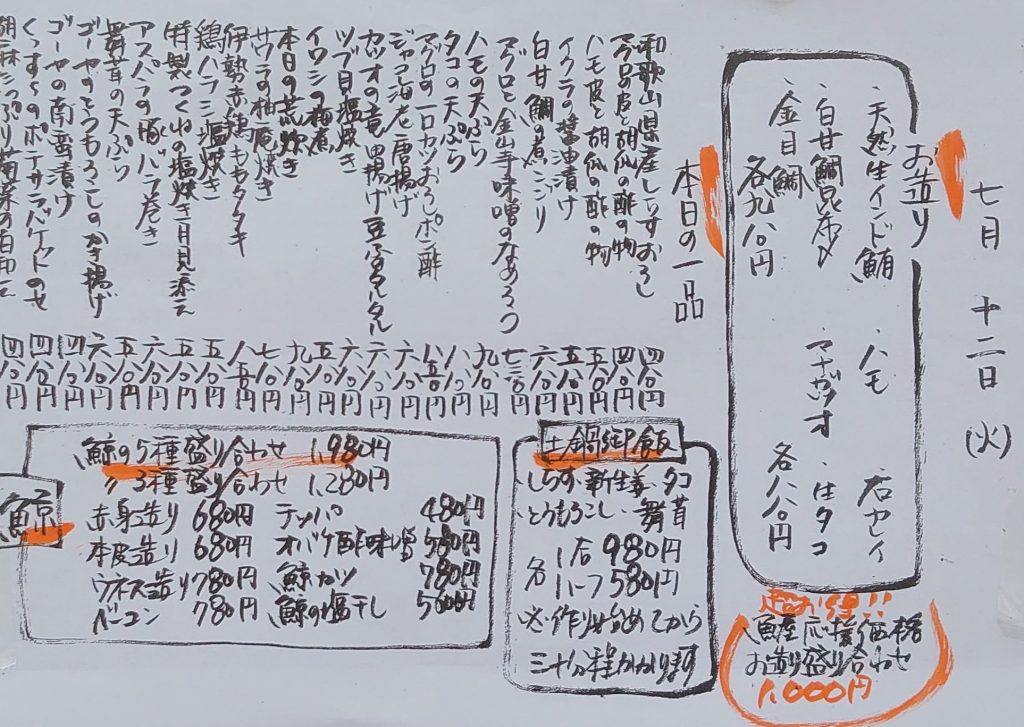 七月 十二日 (火)
お造り
・天然生インド鮪 ・ハモ ・石ガレイ
・白甘鯛昆布〆 ・マナガツオ ・生タコ
・金目鯛
各九八〇円 各八八〇円
超お得!!
魚屋応援価格
お造り盛り合わせ
1,000円
本日の一品
和歌山県産しらすおろし 四八〇円
マグロの皮と胡瓜の酢の物 四八〇円
ハモ皮と胡瓜の酢の物 五八〇円
イクラの醤油漬け 五八〇円
白甘鯛の煮こごり 六八〇円
マグロと金山寺味噌のなめろう 七三〇円
ハモの天ぷら 九八〇円
タコの天ぷら 八八〇円
マグロの一口カツおろしポン酢 八八〇円
ジャコ海老唐揚げ 六八〇円
カツオの竜田揚げ豆腐タルタル 六八〇円
ツブ貝塩焼き 六八〇円
イワシの梅煮 五八〇円
本日の荒炊き 九八〇円
サワラの柚庵焼き 七八〇円
伊勢赤鶏ももタタキ 八八〇円
鶏ハラミ塩焼き 五八〇円
特製つくねの塩焼き月見添え 五八〇円
アスパラの豚バラ巻き 六八〇円
舞茸の天ぷら 五八〇円
ゴーヤのとうもろこしのかき揚げ 六八〇円
ゴーヤの南蛮漬け 四八〇円
くんすモのポテサラバケットのせ 四八〇円
胡麻たっぷり菊菜の白和え 四八〇円
土鍋御飯
・しらす・新生姜・タコ
・とうもろこし・舞茸
各 1合 980円
ハーフ 580円
※作り始めてから
三十分程かかります
鯨
鯨の5種盛り合わせ 1,980円
〃3種盛り合わせ 1,280円
赤身造り 680円 テッパ 480円
本皮造り 680円 オバケ酢味噌 580円
ウネス造り 780円 鯨カツ 780円
ベーコン 780円 鯨の塩干し 500円